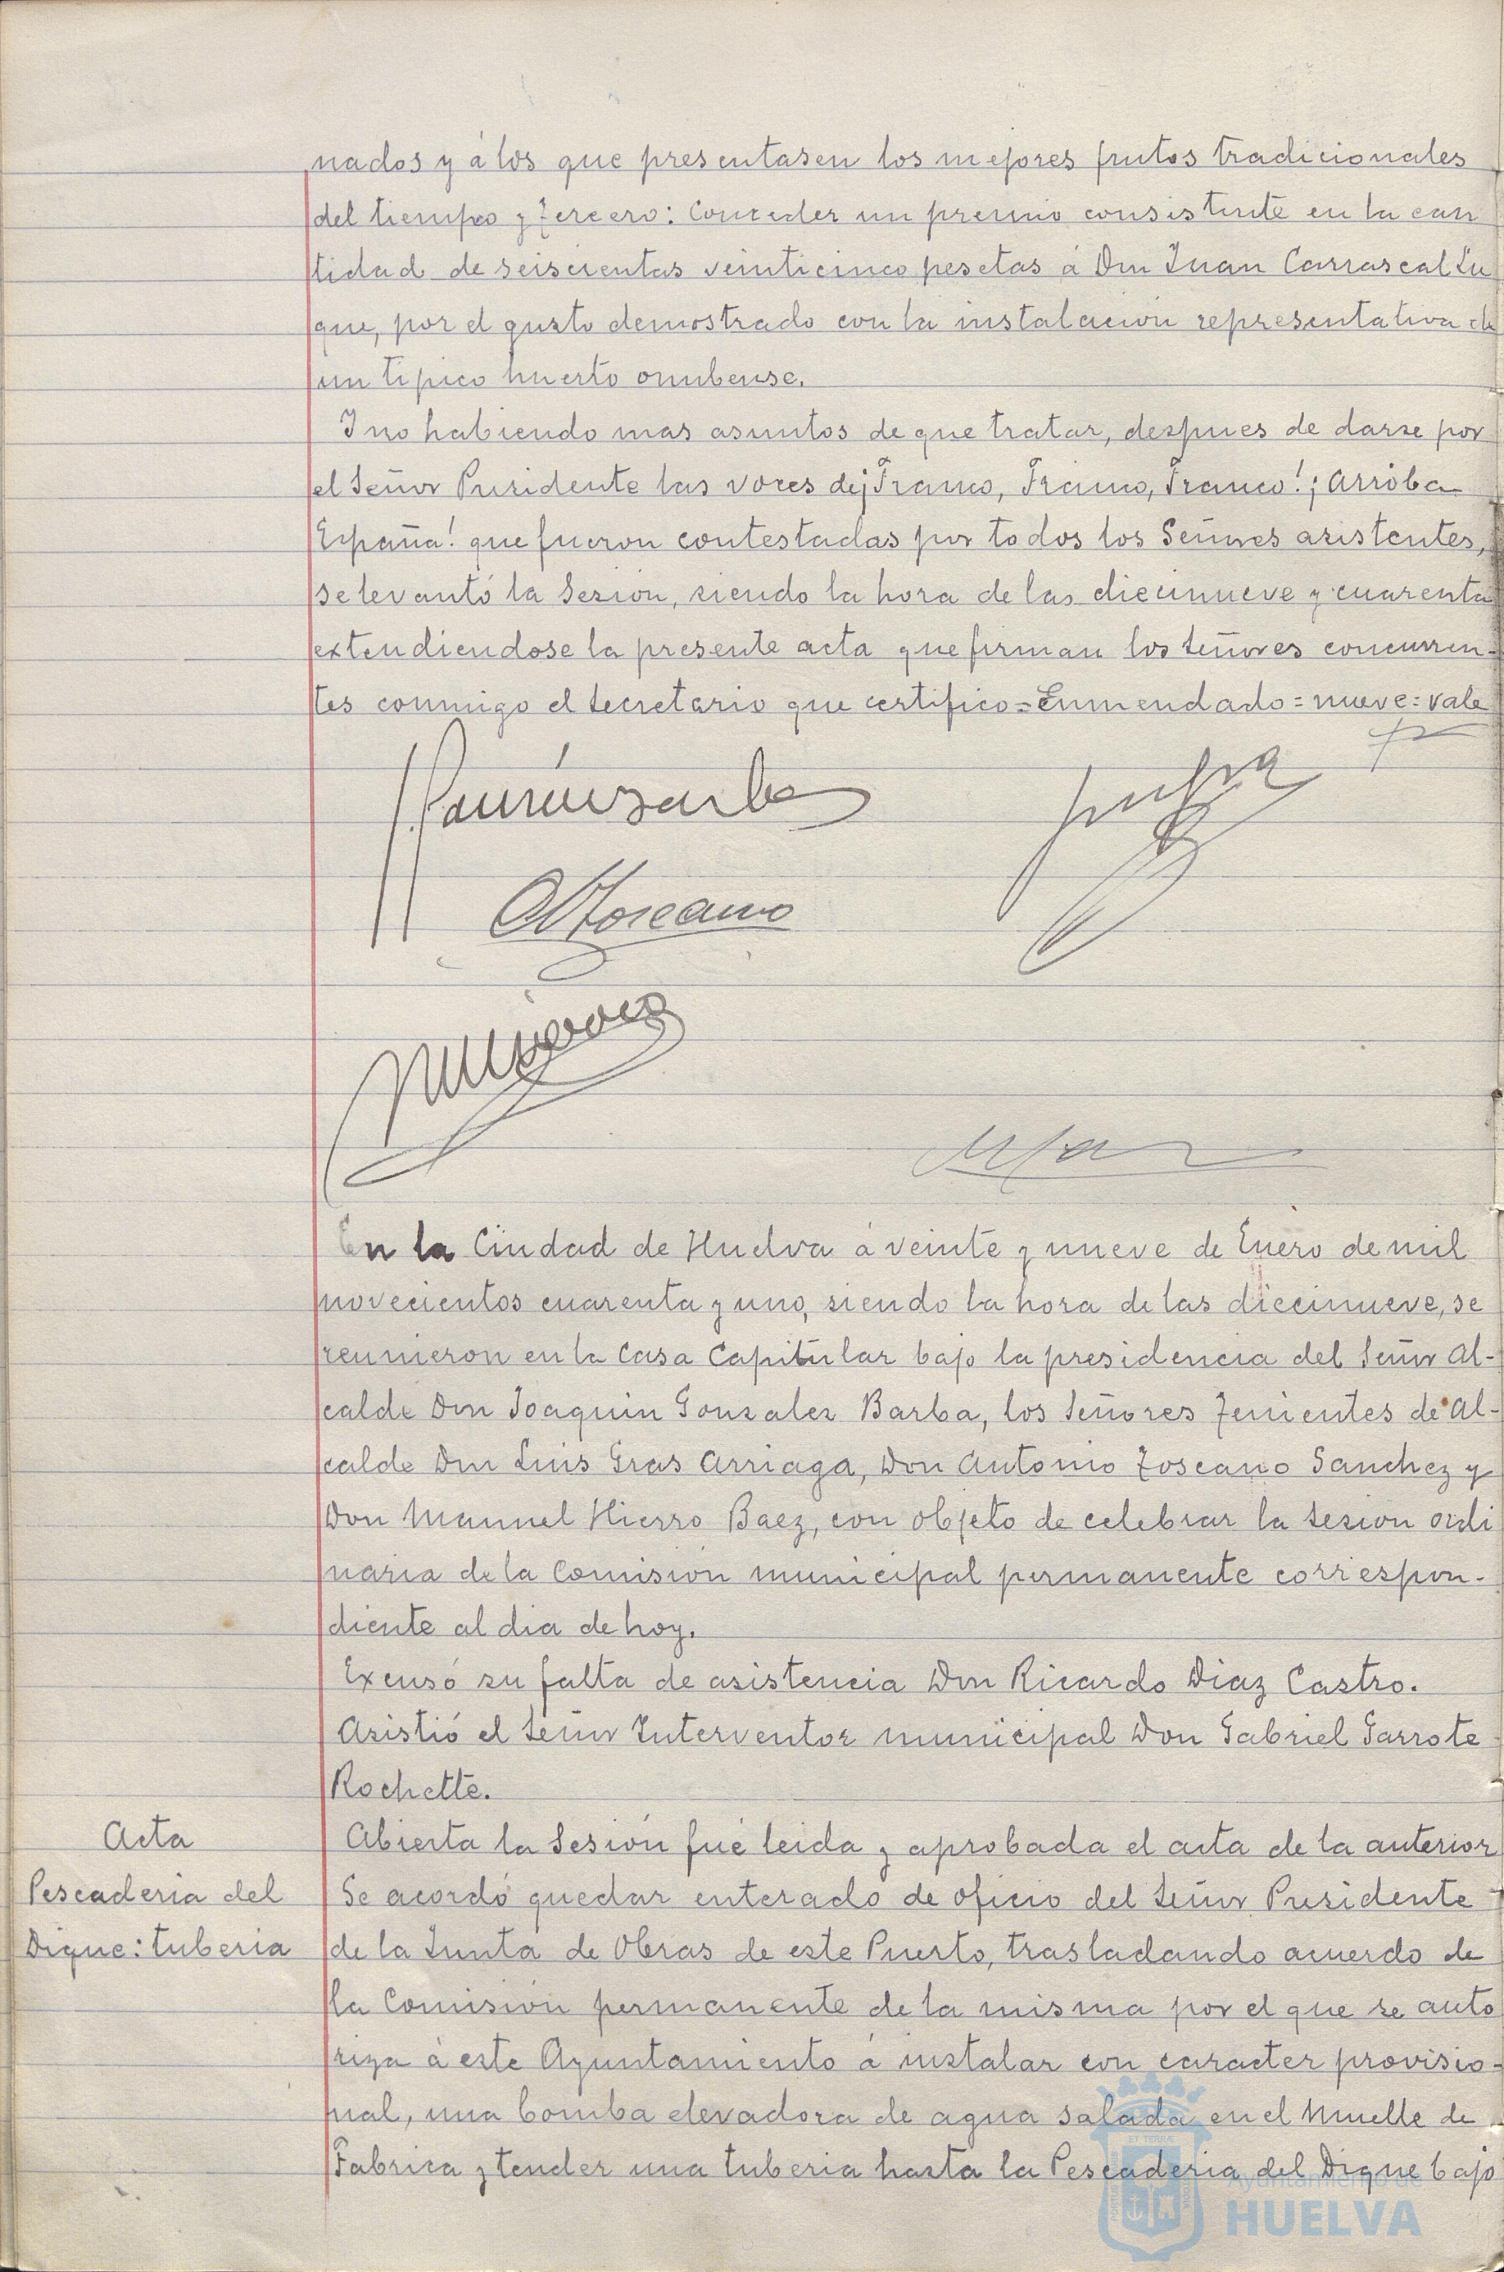 nados y á los que presentasen los mejores frutos tradicionales
del tiempo y Tercero: Conceder un premio consistente en la can
tidad de seiscientas veinticinco pesetas á Don Juan Carrascal Lu
que, por el gusto demostrado con la instalación representativa de
un tipico huerto onubense.
Y no habiendo mas asuntos de que tratar, despues de darse por
el Señor Presidente las voces de ¡Franco, Franco, Franco! ¡Arriba
España! que fueron contestadas por todos los Señores asistentes,
se levantó la Sesión, siendo la hora de las diecinueve y cuarenta
extendiendose la presente acta que firman los Señores concurren-
tes conmigo el Secretario que certifico = Enmendado = nueve = vale
A Toscano
En la Ciudad de Huelva á veinte y nueve de Enero de mil
novecientos cuarenta y uno, siendo la hora de las diecinueve, se
reunieron en la Casa Capitular bajo la presidencia del Señor Al-
calde Don Joaquin Gonzalez Barba, los Señores Tenientes de Al-
calde Don Luis Gras Arriaga, Don Antonio Toscano Sanchez y
Don Manuel Hierro Baez, con objeto de celebrar la Sesion ordi
naria de la Comisión municipal permanente correspon-
diente al dia de hoy.
Excusó su falta de asistencia Don Ricardo Diaz Castro.
Asistió el Señor Interventor municipal Don Gabriel Garrote
Rochette.
Acta
Abierta la Sesión fué leida y aprobada el acta de la anterior
Pescaderia del
Dique: tuberia
Se acordó quedar enterado de oficio del Señor Presidente
de la Junta de Obras de este Puerto, trasladando acuerdo de
la Comisión permanente de la misma por el que se auto
riza á este Ayuntamiento á instalar con caracter provisio-
nal, una bomba elevadora de agua salada en el Muelle de
Fabrica y tender una tuberia hasta la Pescaderia del Dique bajo
Ayuntamiento de
HUELVA